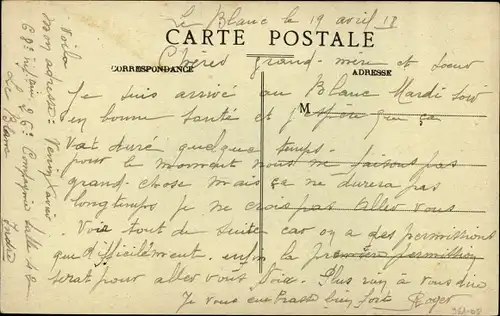 Le Blanc le 19 avril 18
CARTE POSTALE
Chères grand-mère et soeur
CORRESPONDANCE
ADRESSE
Je suis arrivé au Blanc Mardi soir
M
en bonne santé et j'espère que ça
Vat duré quelque temps.
pour le moment nous ne faisons pas
grand-chose mais ça ne durera pas
longtemps je ne crois pas allez vous
Voir tout de suite car on a des permissions
que difficilement. enfin la première permission
serat pour aller vous Voir. Plus rien à vous dire
Je vous embrasse bien fort Roger
Voila
mon adresse
68e infanterie 26e Compagnie
Le Blanc Indre